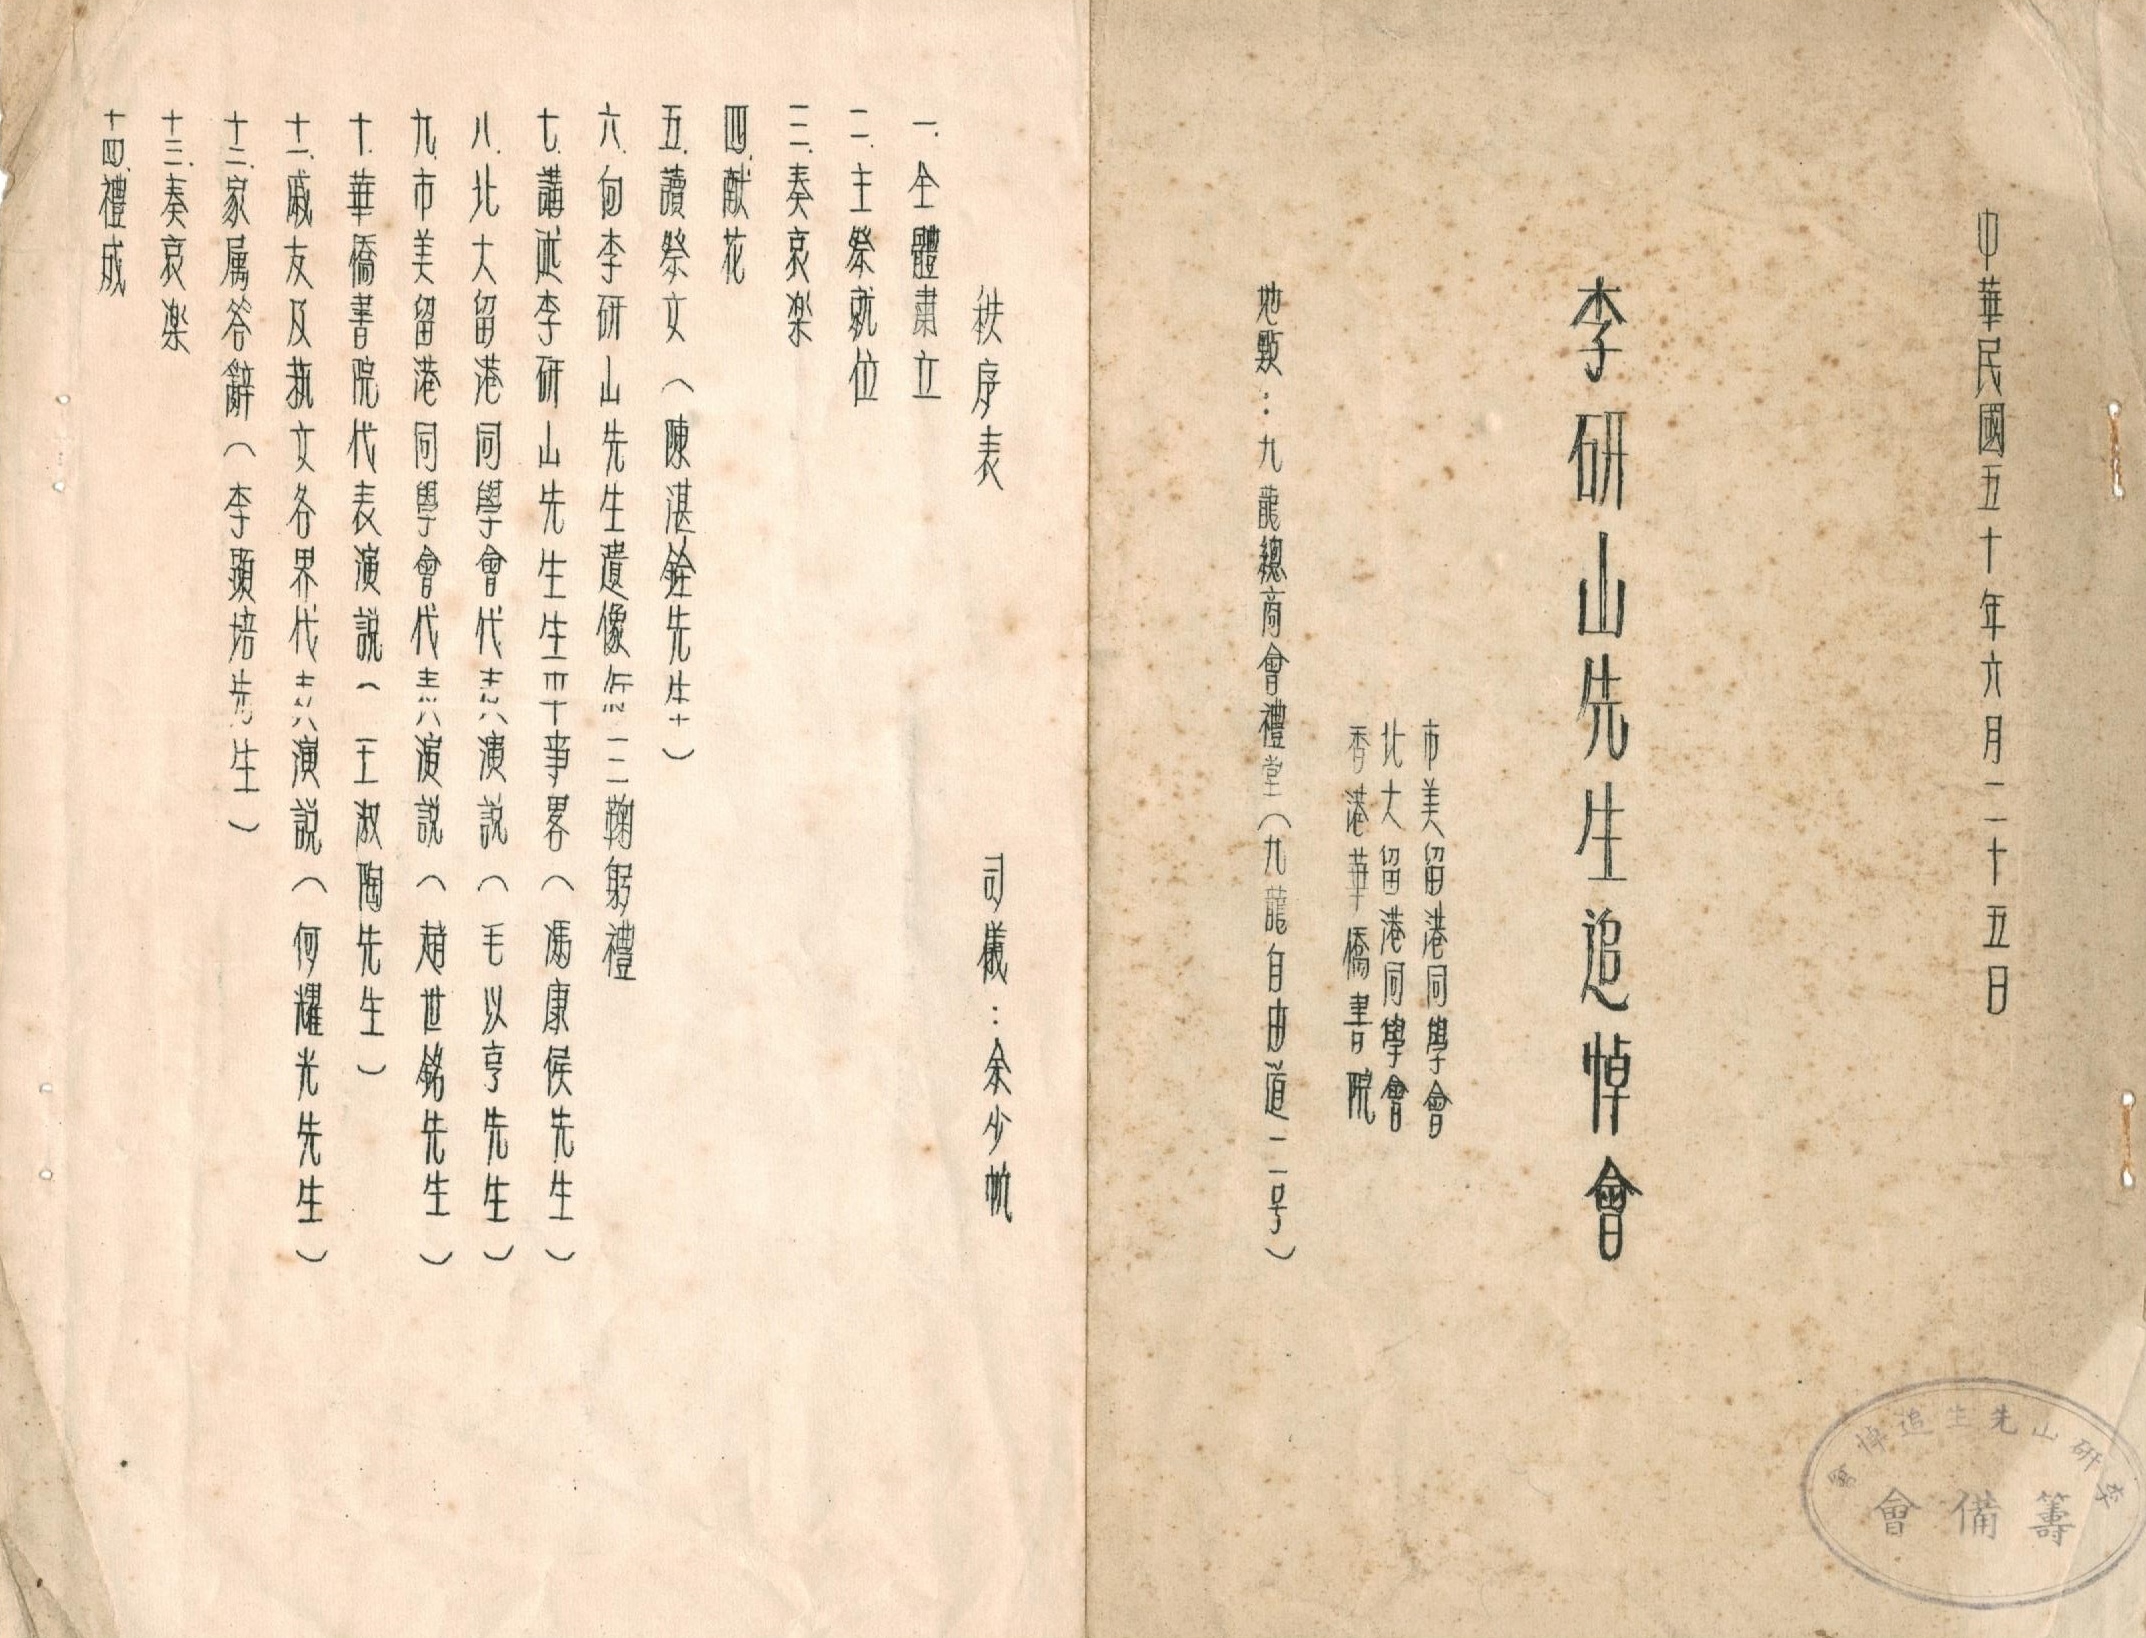 中華民國五十年六月二十五日
李研山先生追悼會
市美留港同學會
北大留港同學會
香港華僑書院
地點：九龍總商會禮堂（九龍自由道二号）
李研山先生追悼會
籌備會
秩序表
司儀：余少帆
一．全體肅立
二．主祭就位
三．奏哀樂
四．献花
五．讀祭文（陳湛銓先生）
六．向李研山先生遺像行三鞠躬禮
七．講述李研山先生生平事畧（馮康侯先生）
八．北大留港同學會代表演説（毛以亨先生）
九．市美留港同學會代表演説（趙世銘先生）
十．華僑書院代表演説（王淑陶先生）
十一．戚友及藝文各界代表演説（何耀光先生）
十二．家属答辭（李顯培先生）
十三．奏哀樂
十四．禮成